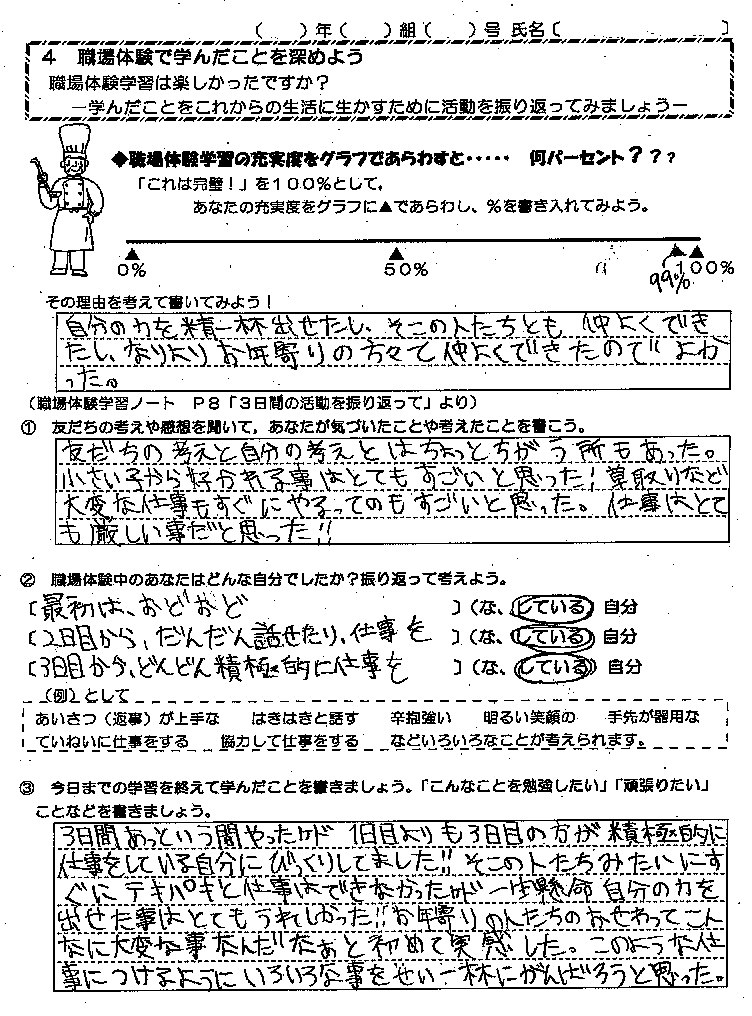 （　　）年（　　）組（　　）号 氏名〔　　　　　　　　〕
４　職場体験で学んだことを深めよう
職場体験学習は楽しかったですか？
―学んだことをこれからの生活に生かすために活動を振り返ってみましょう―
◆職場体験学習の充実度をグラフであらわすと・・・・・　何パーセント？？？
「これは完璧！」を１００％として，
あなたの充実度をグラフに▲であらわし、％を書き入れてみよう。
０％　５０％　99%　１００％
その理由を考えて書いてみよう！
自分の力を精一杯出せたし、そこの人たちとも 仲よくでき
たし、なりより お年寄りの方々て仲よくできたので よか
った。
（職場体験学習ノート　Ｐ８「３日間の活動を振り返って」より）
①　友だちの考えや感想を聞いて，あなたが気づいたことや考えたことを書こう。
友だちの考えと自分の考えとはちょっとちがう所もあった。
小さい子から好かれる事はとてもすごいと思った！草取りなど
大変な仕事もすぐにやるってのもすごいと思った。仕事はとて
も厳しい事だと思った!!
②　職場体験中のあなたはどんな自分でしたか？振り返って考えよう。
〔最初は、おどおど　〕（な、している）自分
〔2日目から、だんだん話せたり、仕事を　〕（な、している）自分
〔3日目から、どんどん積極的に仕事を　〕（な、している）自分
（例）として
あいさつ（返事）が上手な　はきはきと話す　辛抱強い　明るい笑顔の　手先が器用な
ていねいに仕事をする　協力して仕事をする　などいろいろなことが考えられます。
③　今日までの学習を終えて学んだことを書きましょう。「こんなことを勉強したい」「頑張りたい」
ことなどを書きましょう。
3日間あっという間やったけど 1日目よりも3日目の方が積極的に
仕事をしている自分にびっくりしてました!! そこの人たちみたいにす
ぐにテキパキと仕事はできなかったけど 一生懸命自分の力を
出せた事はとてもうれしかった!! お年寄りの人たちのおせわってこん
なに大変な事なんだなぁと初めて実感した。このような仕
事につけるようにいろいろな事をせい一杯にがんばろうと思った。